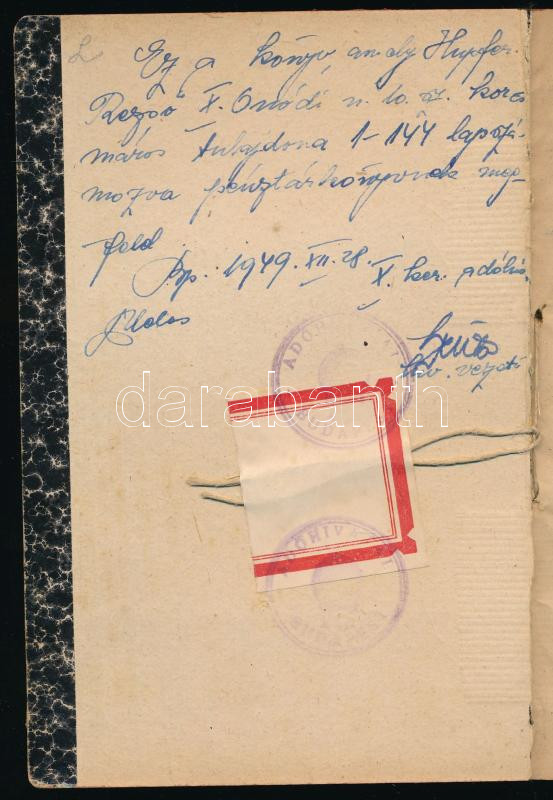 Ez a könyv amely Hupfer
Rezső X. Onódi u. 10. sz. korcs
máros tulajdona 1-144 lapszá-
mozva pénztárkönyvnek meg-
felel
Bp. 1949. XII. 28.
X. ker. adóhiv.
hiv. vezető
ADÓHIVATAL
BUDAPEST
darabanth
ADÓHIVATAL
BUDAPEST